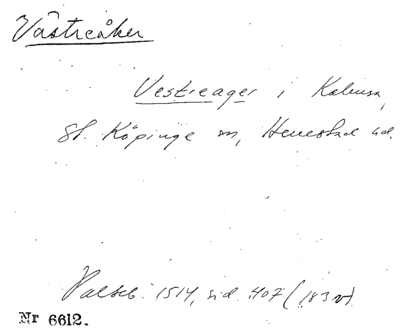 Västreåker
Vestreager i Kabusa,
St. Köpinge sn, Herrestad hd.
Palteb. 1514, sid. 407 (183 v).
Nr 6612.